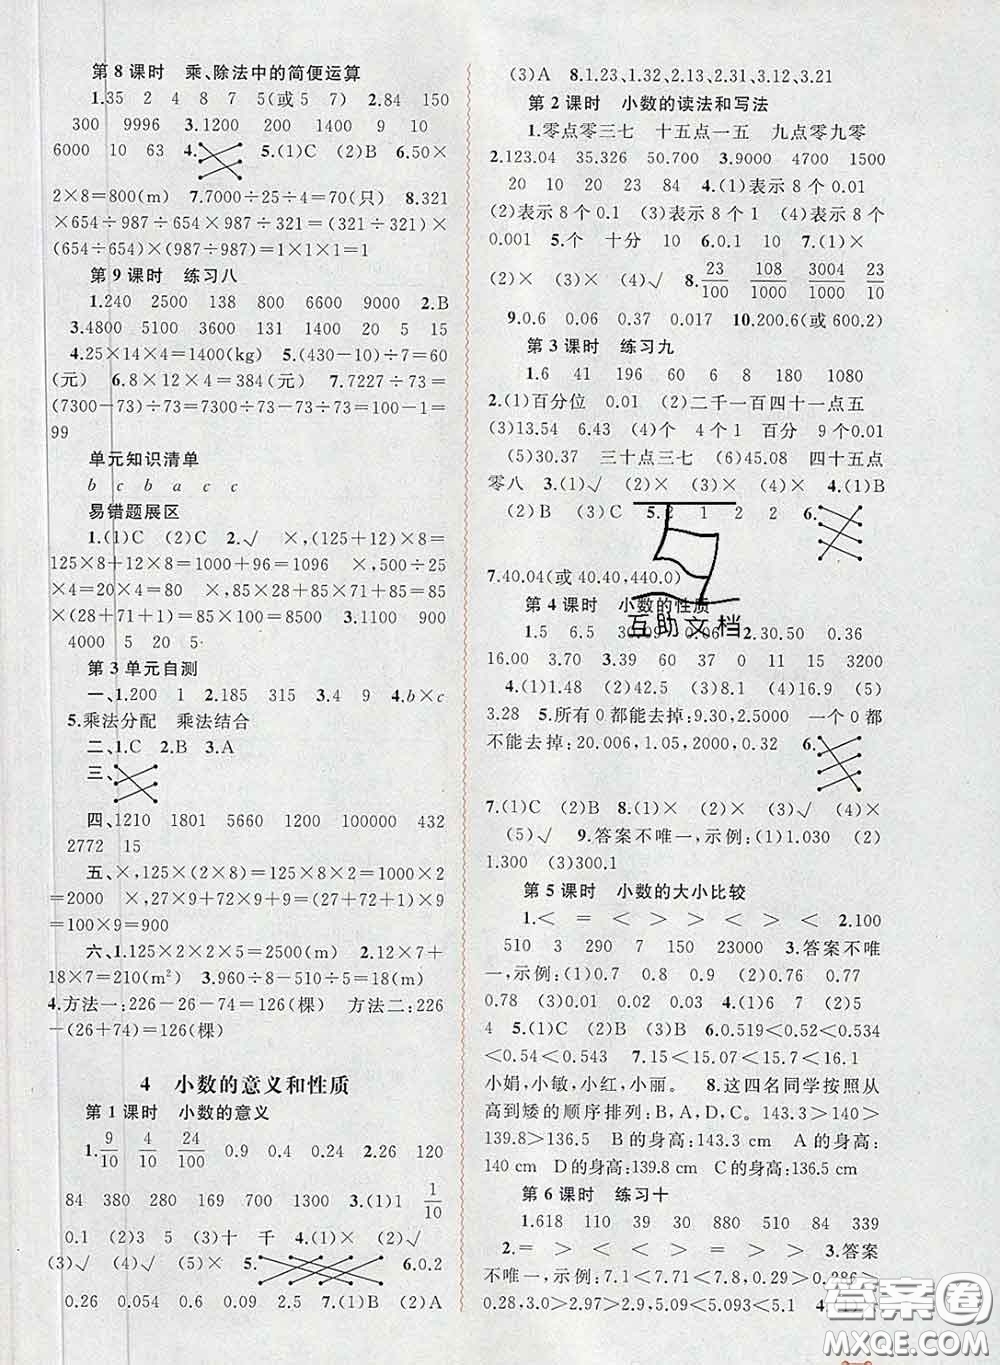 第 8 课时　乘、除法中的简便运算
1.35　2　4　8　7　5(或 5　7)　2.84　150
300　9996　3.1200　200　1400　9　10
6000　10　63　4.　5.(1)C　(2)B　6.50×
2×8=800(m)　7.7000÷25÷4=70(只)　8.321
×654÷987÷654×987÷321=(321÷321)×
(654÷654)×(987÷987)=1×1×1=1
第 9 课时　练习八
1.240　2500　138　800　6600　9000　2.B
3.4800　5100　3600　131　1400　20　5　15
4.25×14×4=1400(kg)　5.(430-10)÷7=60
(元)　6.8×12×4=384(元)　7.7227÷73=
(7300-73)÷73=7300÷73-73÷73=100-1=
99
单元知识清单
b　c　b　a　c　c
易错题展区
1.(1)C　(2)C　2.√　×,(125+12)×8=
125×8+12×8=1000+96=1096　×,125÷25
=5　√　×,85×28+85×71+85=85
×(28+71+1)=85×100=8500　3.1100　900
4000　5　20　5
第 3 单元自测
一、1.200　1　2.185　315　3.4　9　4.b×c
5.乘法分配　乘法结合
二、1.C　2.B　3.A
三、
四、1210　1801　5660　1200　100000　432
2772　15
五、×,125×(2×8)=125×2×8=1000×2
=2000　×,27×9+72×9+9=(27+72+1)×9
=100×9=900
六、1.125×2×2×5=2500(m)　2.12×7+
18×7=210(m²)　3.960÷8-510÷5=18(m)
4.方法一:226-26-74=126(棵)　方法二:226
-(26+74)=126(棵)
4　小数的意义和性质
第 1 课时　小数的意义
1. 9/10　4/10　24/100　0.9　0.4　0.24　2.26　120
84　380　280　169　700　1300　3.(1)1　1/10
0.1　(2)3　5　(3)十　千　4.(1)×　(2)√
(3)√　(4)√　(5)×　5.　6.0.2
0.26　0.054　0.6　0.09　2.5　7.(1)B　(2)A
(3)A　8.1.23,1.32,2.13,2.31,3.12,3.21
第 2 课时　小数的读法和写法
1.零点零三七　十五点一五　九点零九零
2.123.04　35.326　50.700　3.9000　4700　1500
20　10　20　23　84　4.(1)表示 8 个 0.01
(2)表示 8 个 0.1　(3)表示 8 个 1　(4)表示 8 个
0.001　5.个　十分　10　6.0.1　10　7.(1)×
(2)×　(3)×　(4)√　8. 23/100　108/1000　3004/1000　23/10
9.0.6　0.06　0.37　0.017　10.200.6(或 600.2)
第 3 课时　练习九
1.6　41　196　60　6　8　180　1080
2.(1)百分位　0.01　(2)二千一百四十一点五
(3)13.54　6.43　(4)个　4 个 1　百分　9 个 0.01
(5)30.37　三十点三七　(6)45.08　四十五点
零八　3.(1)√　(2)×　(3)×　4.(1)B
(2)B　(3)C　5.2　1　2　2　6.
7.40.04(或 40.40,440.0)
第 4 课时　小数的性质
1.5　6.5　30.09　0.06　2.30.50　0.36
16.00　3.70　3.39　60　37　0　11　15　3200
4.(1)1.48　(2)42.5　(3)8.1　(4)16.9　(5)
3.28　5.所有 0 都能去掉:9.30,2.5000　一个 0 都
不能去掉:20.006,1.05,2000,0.32　6.
7.(1)C　(2)B　8.(1)×　(2)×　(3)√　(4)×
(5)√　9.答案不唯一,示例:(1)1.030　(2)
1.300　(3)300.1
第 5 课时　小数的大小比较
1.<　=　<　>　>　<　>　<　2.100
510　3　290　7　150　23000　3.答案不唯
一,示例:(1)0.7　0.8　0.9　(2)0.76　0.77
0.78　(3)0.01　0.02　0.03　4.(1)6　7　(2)5
4　5.(1)C　(2)B　(3)C　6.0.519<0.52<0.534
<0.54<0.542　7.15<15.7<15.9<16.1
小娟,小敏,小红,小丽。　8.这四名同学按照从
高到矮的顺序排列:B,A,D,C。143.3>140>
139.8>136.5　B 的身高:143.3 cm　A 的身高:
140 cm　D 的身高:139.8 cm　C 的身高:136.5 cm
第 6 课时　练习十
1.618　110　39　30　880　510　84　339
2.=　>　<　>　<　>　3.答案
不唯一,示例:7.1<7.71<7.8,0.29>0.286>
0.28,3.0>2.97>2.9,5.09<5.093<5.1
互助文档
答案圈
MXQE.COM